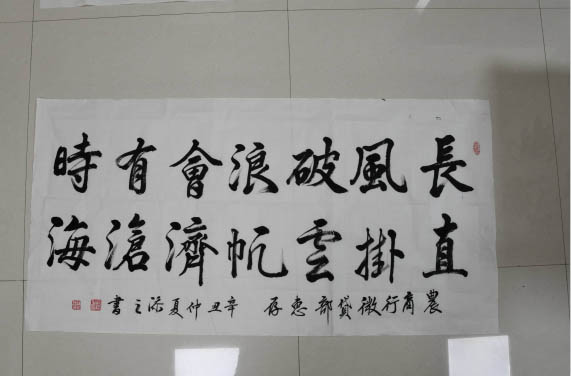 長風破浪會有時
直掛雲帆濟滄海
農商行微貸部惠存 辛丑仲夏添之書